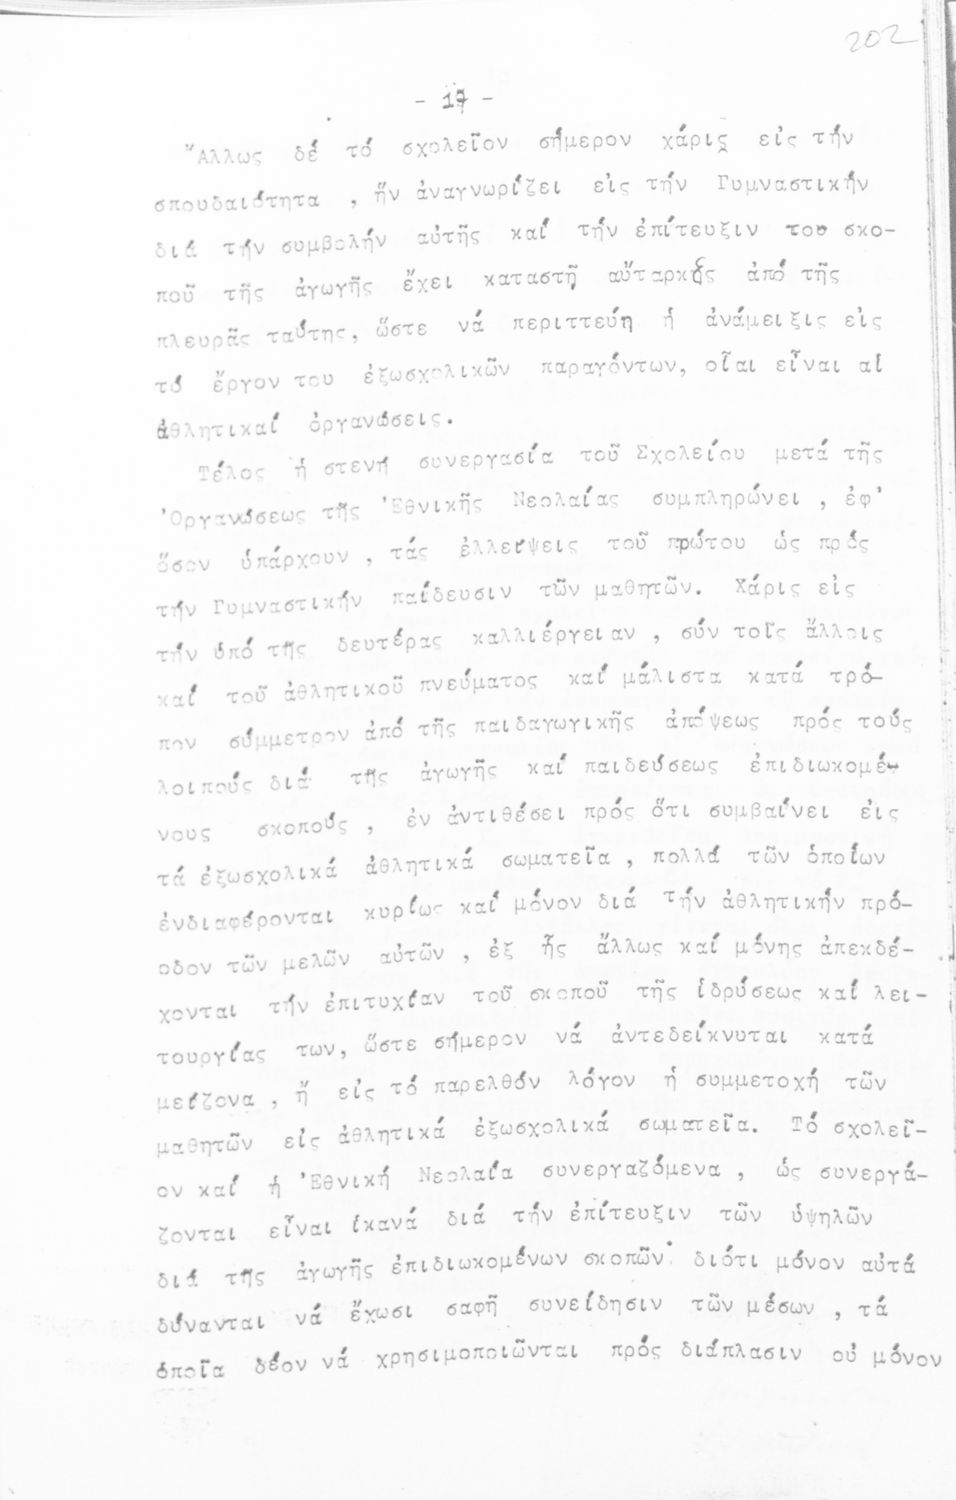 202
- 17 -
Ἄλλως δέ τό σχολεῖον σήμερον χάρις εἰς τήν
σπουδαιότητα , ἥν ἀναγνωρίζει εἰς τήν Γυμναστικήν
διά τήν συμβολήν αὐτῆς καί τήν ἐπίτευξιν του σκο-
ποῦ τῆς ἀγωγῆς ἔχει καταστῆ αὔταρκης ἀπό τῆς
πλευρᾶς ταύτης, ὥστε νά περιττεύη ἡ ἀνάμειξις εἰς
τό ἔργον του ἐξωσχολικῶν παραγόντων, οἷαι εἶναι αἱ
ἀθλητικαί ὀργανώσεις.
Τέλος ἡ στενή συνεργασία τοῦ Σχολείου μετά τῆς
Ὀργανώσεως τῆς Ἐθνικῆς Νεολαίας συμπληρώνει , ἐφ'
ὅσον ὑπάρχουν , τάς ἐλλείψεις τοῦ πρώτου ὡς πρός
τήν Γυμναστικήν παίδευσιν τῶν μαθητῶν. Χάρις εἰς
τήν ὑπό τῆς δευτέρας καλλιέργειαν , σύν τοῖς ἄλλοις
καί τοῦ ἀθλητικοῦ πνεύματος καί μάλιστα κατά τρό-
πον σύμμετρον ἀπό τῆς παιδαγωγικῆς ἀπόψεως πρός τούς
λοιπούς διά τῆς ἀγωγῆς καί παιδεύσεως ἐπιδιωκομέ-
νους σκοπούς , ἐν ἀντιθέσει πρός ὅτι συμβαίνει εἰς
τά ἐξωσχολικά ἀθλητικά σωματεῖα , πολλά τῶν ὁποίων
ἐνδιαφέρονται κυρίως καί μόνον διά τήν ἀθλητικήν πρό-
οδον τῶν μελῶν αὐτῶν , ἐξ ἧς ἄλλως καί μόνης ἀπεκδέ-
χονται τήν ἐπιτυχίαν τοῦ σκοποῦ τῆς ἱδρύσεως καί λει-
τουργίας των, ὥστε σήμερον νά ἀντεδείκνυται κατά
μείζονα , ἤ εἰς τό παρελθόν λόγον ἡ συμμετοχή τῶν
μαθητῶν εἰς ἀθλητικά ἐξωσχολικά σωματεῖα. Τό σχολεῖ-
ον καί ἡ Ἐθνική Νεολαία συνεργαζόμενα , ὡς συνεργά-
ζονται εἶναι ἱκανά διά τήν ἐπίτευξιν τῶν ὑψηλῶν
διά τῆς ἀγωγῆς ἐπιδιωκομένων σκοπῶν· διότι μόνον αὐτά
δύνανται νά ἔχωσι σαφῆ συνείδησιν τῶν μέσων , τά
ὁποῖα δέον νά χρησιμοποιῶνται πρός διάπλασιν οὐ μόνον